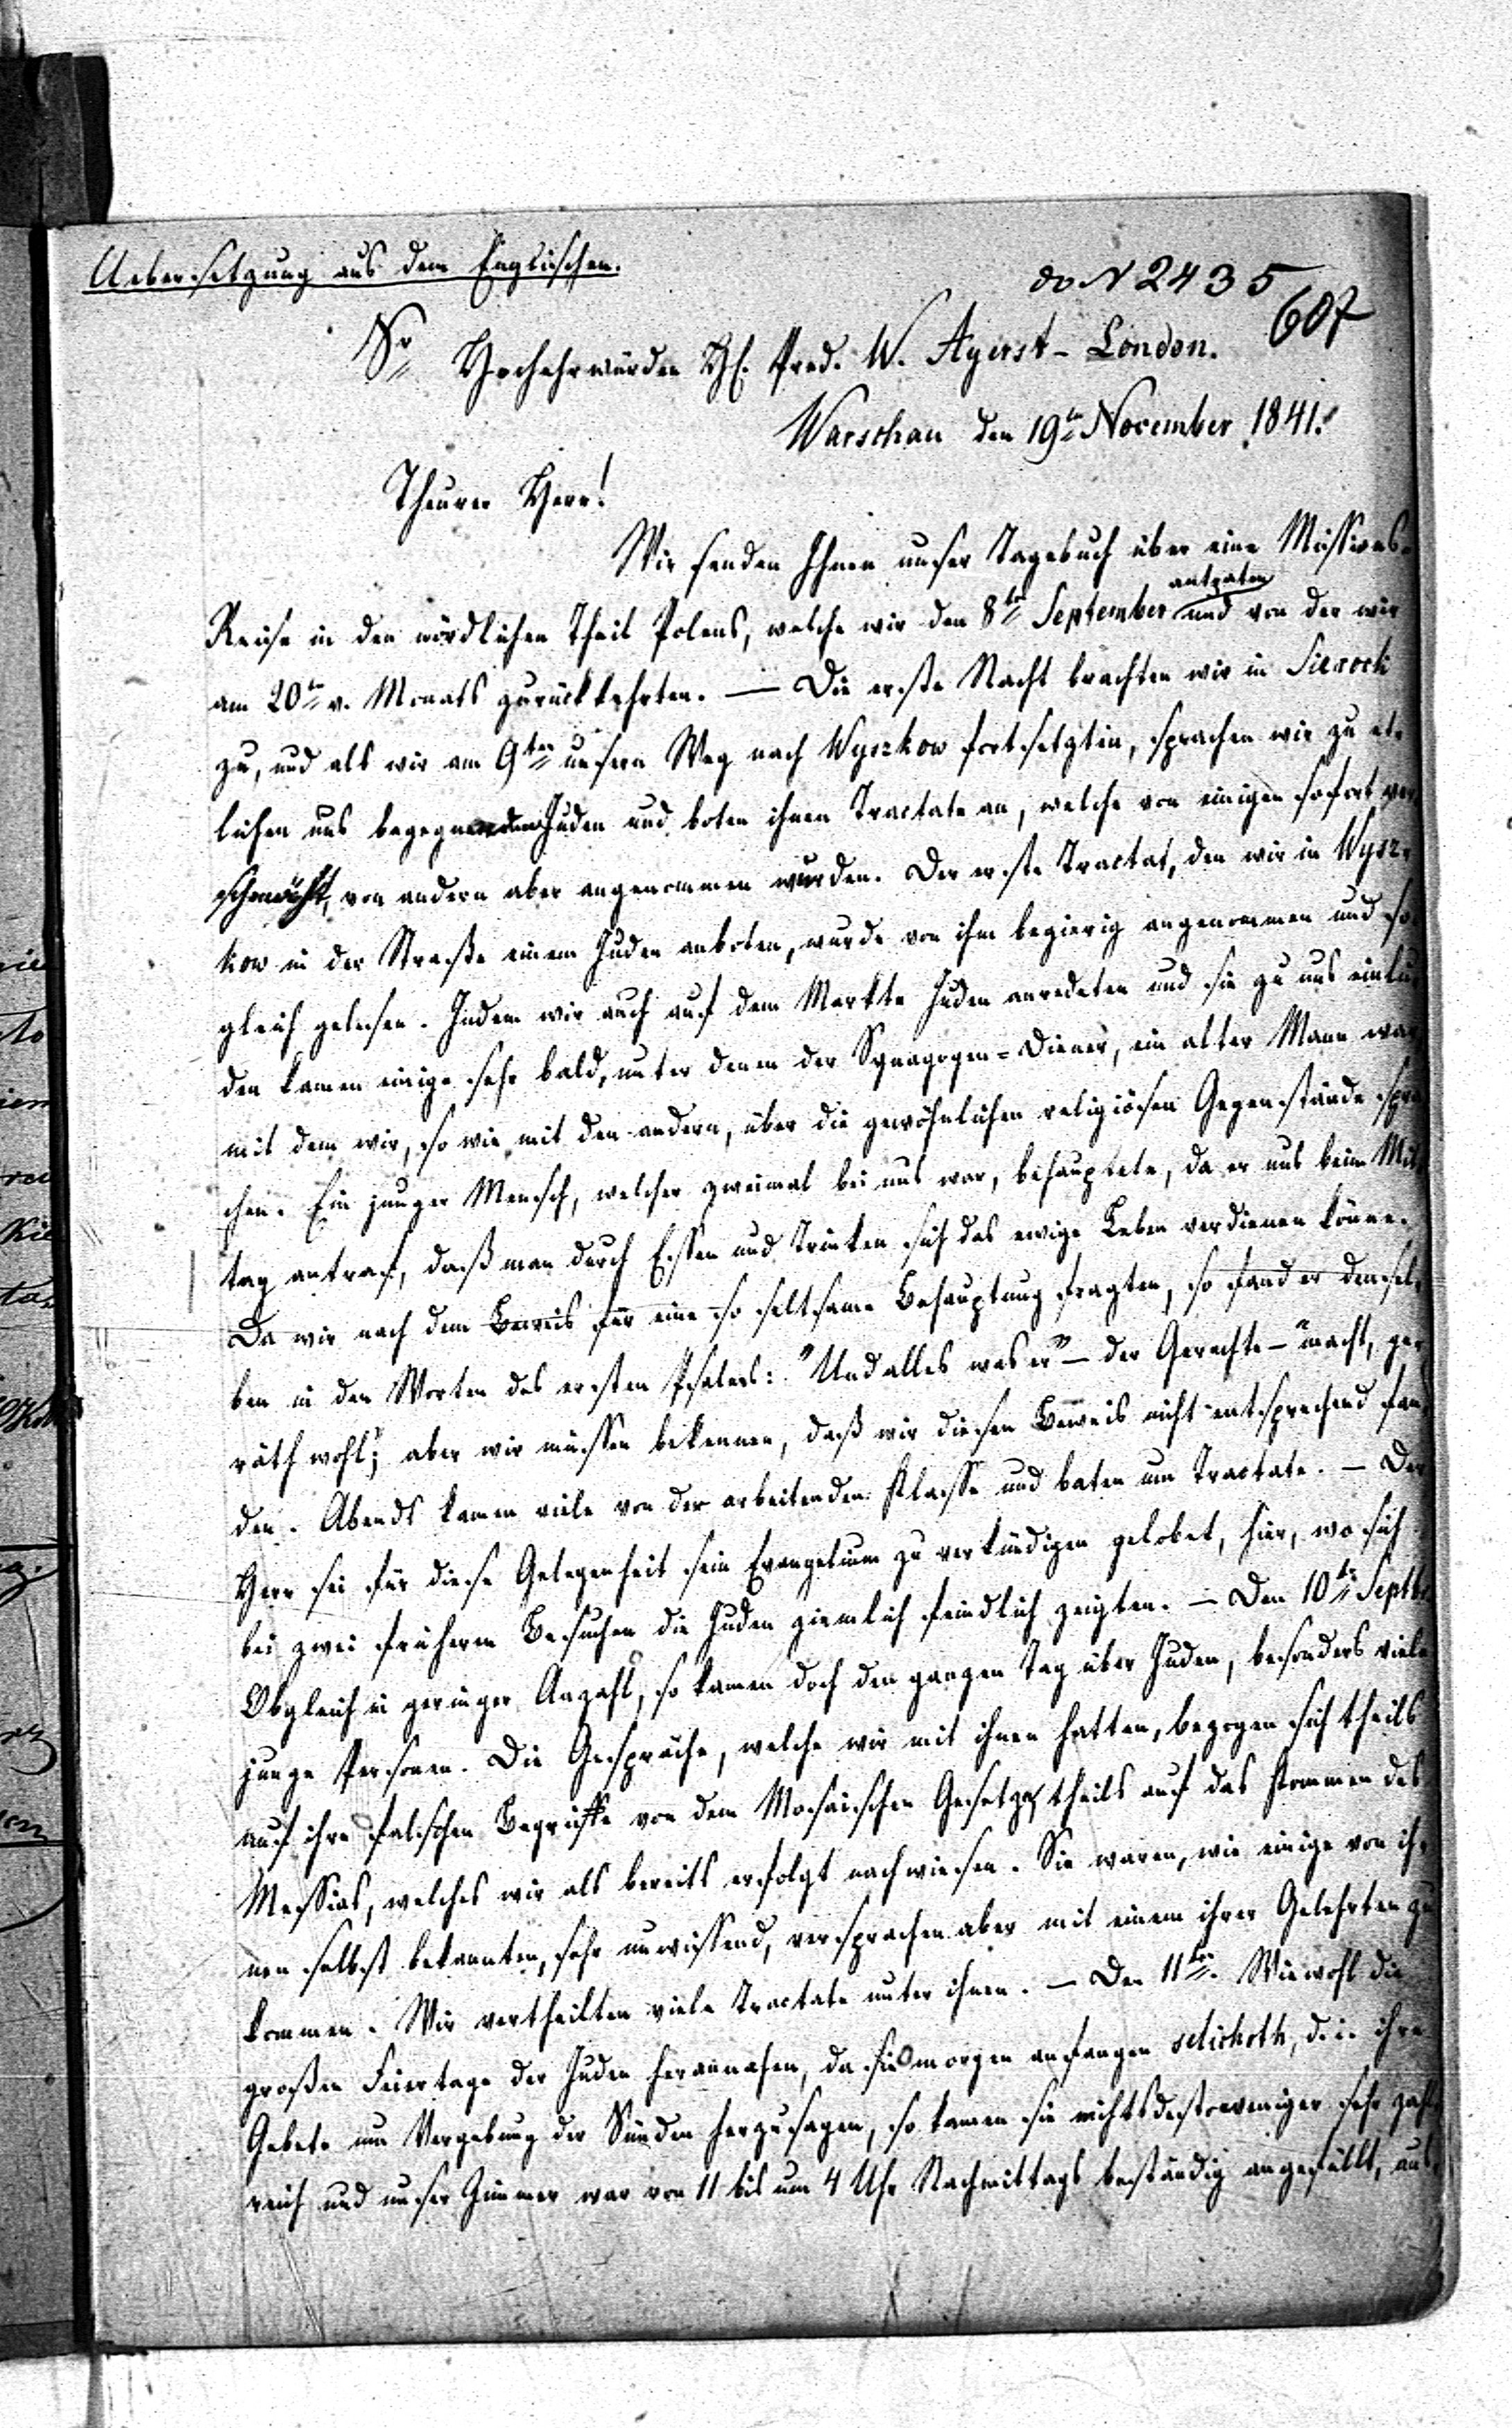 Uebersetzung aus dem Englischen.
do N 2435
607
Sr Hochehrwürden H. Pred. W. Ayerst - London.
Warschau den 19ten November 1841.
Theurer Herr!
Wir senden Ihnen unser Tagebuch über eine Missions-
antraten
Reise in den nördlichen Theil Polens, welche wir den 8ten September und von der wir
am 20ten v. Monats zurückkehrten. — Die erste Nacht brachten wir in Sierock
zu, und als wir am 9ten unsern Weg nach Wyszkow fortsetzten, sprachen wir zu et-
lichen uns begegnenden Juden und boten ihnen Tractate an, welche von einigen sofort ver-
schmäht, von andern aber angenommen wurden. Der erste Tractat, den wir in Wysz-
kow in der Straße einem Juden anboten, wurde von ihm begierig angenommen und so-
gleich gelesen. Indem wir auch auf dem Markte Juden anredeten und sie zu uns einlu-
den kamen einige sehr bald, unter denen der Synagogen-Diener, ein alter Mann war
mit dem wir, so wie mit den andern, über die gewöhnlichen religiösen Gegenstände spra-
chen. Ein junger Mensch, welcher zweimal bei uns war, behauptete, da er uns beim Mit-
tag antraf, daß man durch Essen und Trinken sich das ewige Leben verdienen könne.
Da wir nach dem Beweis für eine so seltsame Behauptung fragten, so fand er densel-
ben in den Worten des ersten Psalms: "Und alles was er" – der Gerechte – "macht, ge-
räth wohl"; aber wir müssen bekennen, daß wir diesen Beweis nicht entsprechend fan-
den. Abends kamen viele von der arbeitenden Klasse und baten um Tractate. — Der
Herr sei für diese Gelegenheit sein Evangelium zu verkündigen gelobet, hier, wo sich
bei zwei früheren Besuchen die Juden ziemlich feindlich zeigten. — Den 10ten Septbr
Obgleich in geringer Anzahl, so kamen doch den ganzen Tag über Juden, besonders viele
junge Personen. Die Gespräche, welche wir mit ihnen hatten, bezogen sich theils
auf ihre falschen Begriffe von dem Mosaischen Gesetze, theils auf das Kommen des
Messias, welches wir als bereits erfolgt nachwiesen. Sie waren, wie einige von ih-
nen selbst bekannten, sehr unwissend, versprachen aber mit einem ihrer Gelehrten zu
kommen. Wir vertheilten viele Tractate unter ihnen. — Den 11ten. Wiewohl die
großen Feiertage der Juden herannahen, da sie morgen anfangen selichoth, d. i. ihre
Gebete um Vergebung der Sünden herzusagen, so kamen sie nichtsdestoweniger sehr zahl-
reich und unser Zimmer war von 11 bis um 4 Uhr Nachmittags beständig angefüllt, aus-